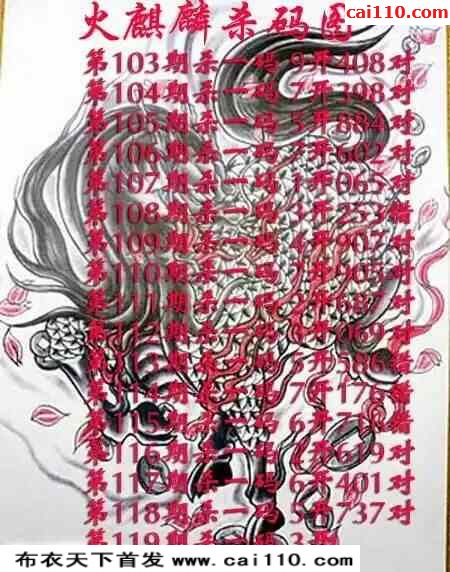 cai110.com
火麒麟杀码图
第103期杀一码 9开408对
第104期杀一码 7开398对
第105期杀一码 5开884对
第106期杀一码 开602对
第107期杀一码 1开065对
第108期杀一码 3开253错
第109期杀一码 4开907对
第110期杀一码 开905对
第111期杀一码 开687对
第 期杀一码 开069对
第 期杀一码 5开586错
第114期杀一码 7开176错
第115期杀一码 6开 错
第116期杀一码 开619对
第117期杀一码 6开401对
第118期杀一码 5开737对
第119期杀一码 3开
布衣天下首发 www.cai110.com